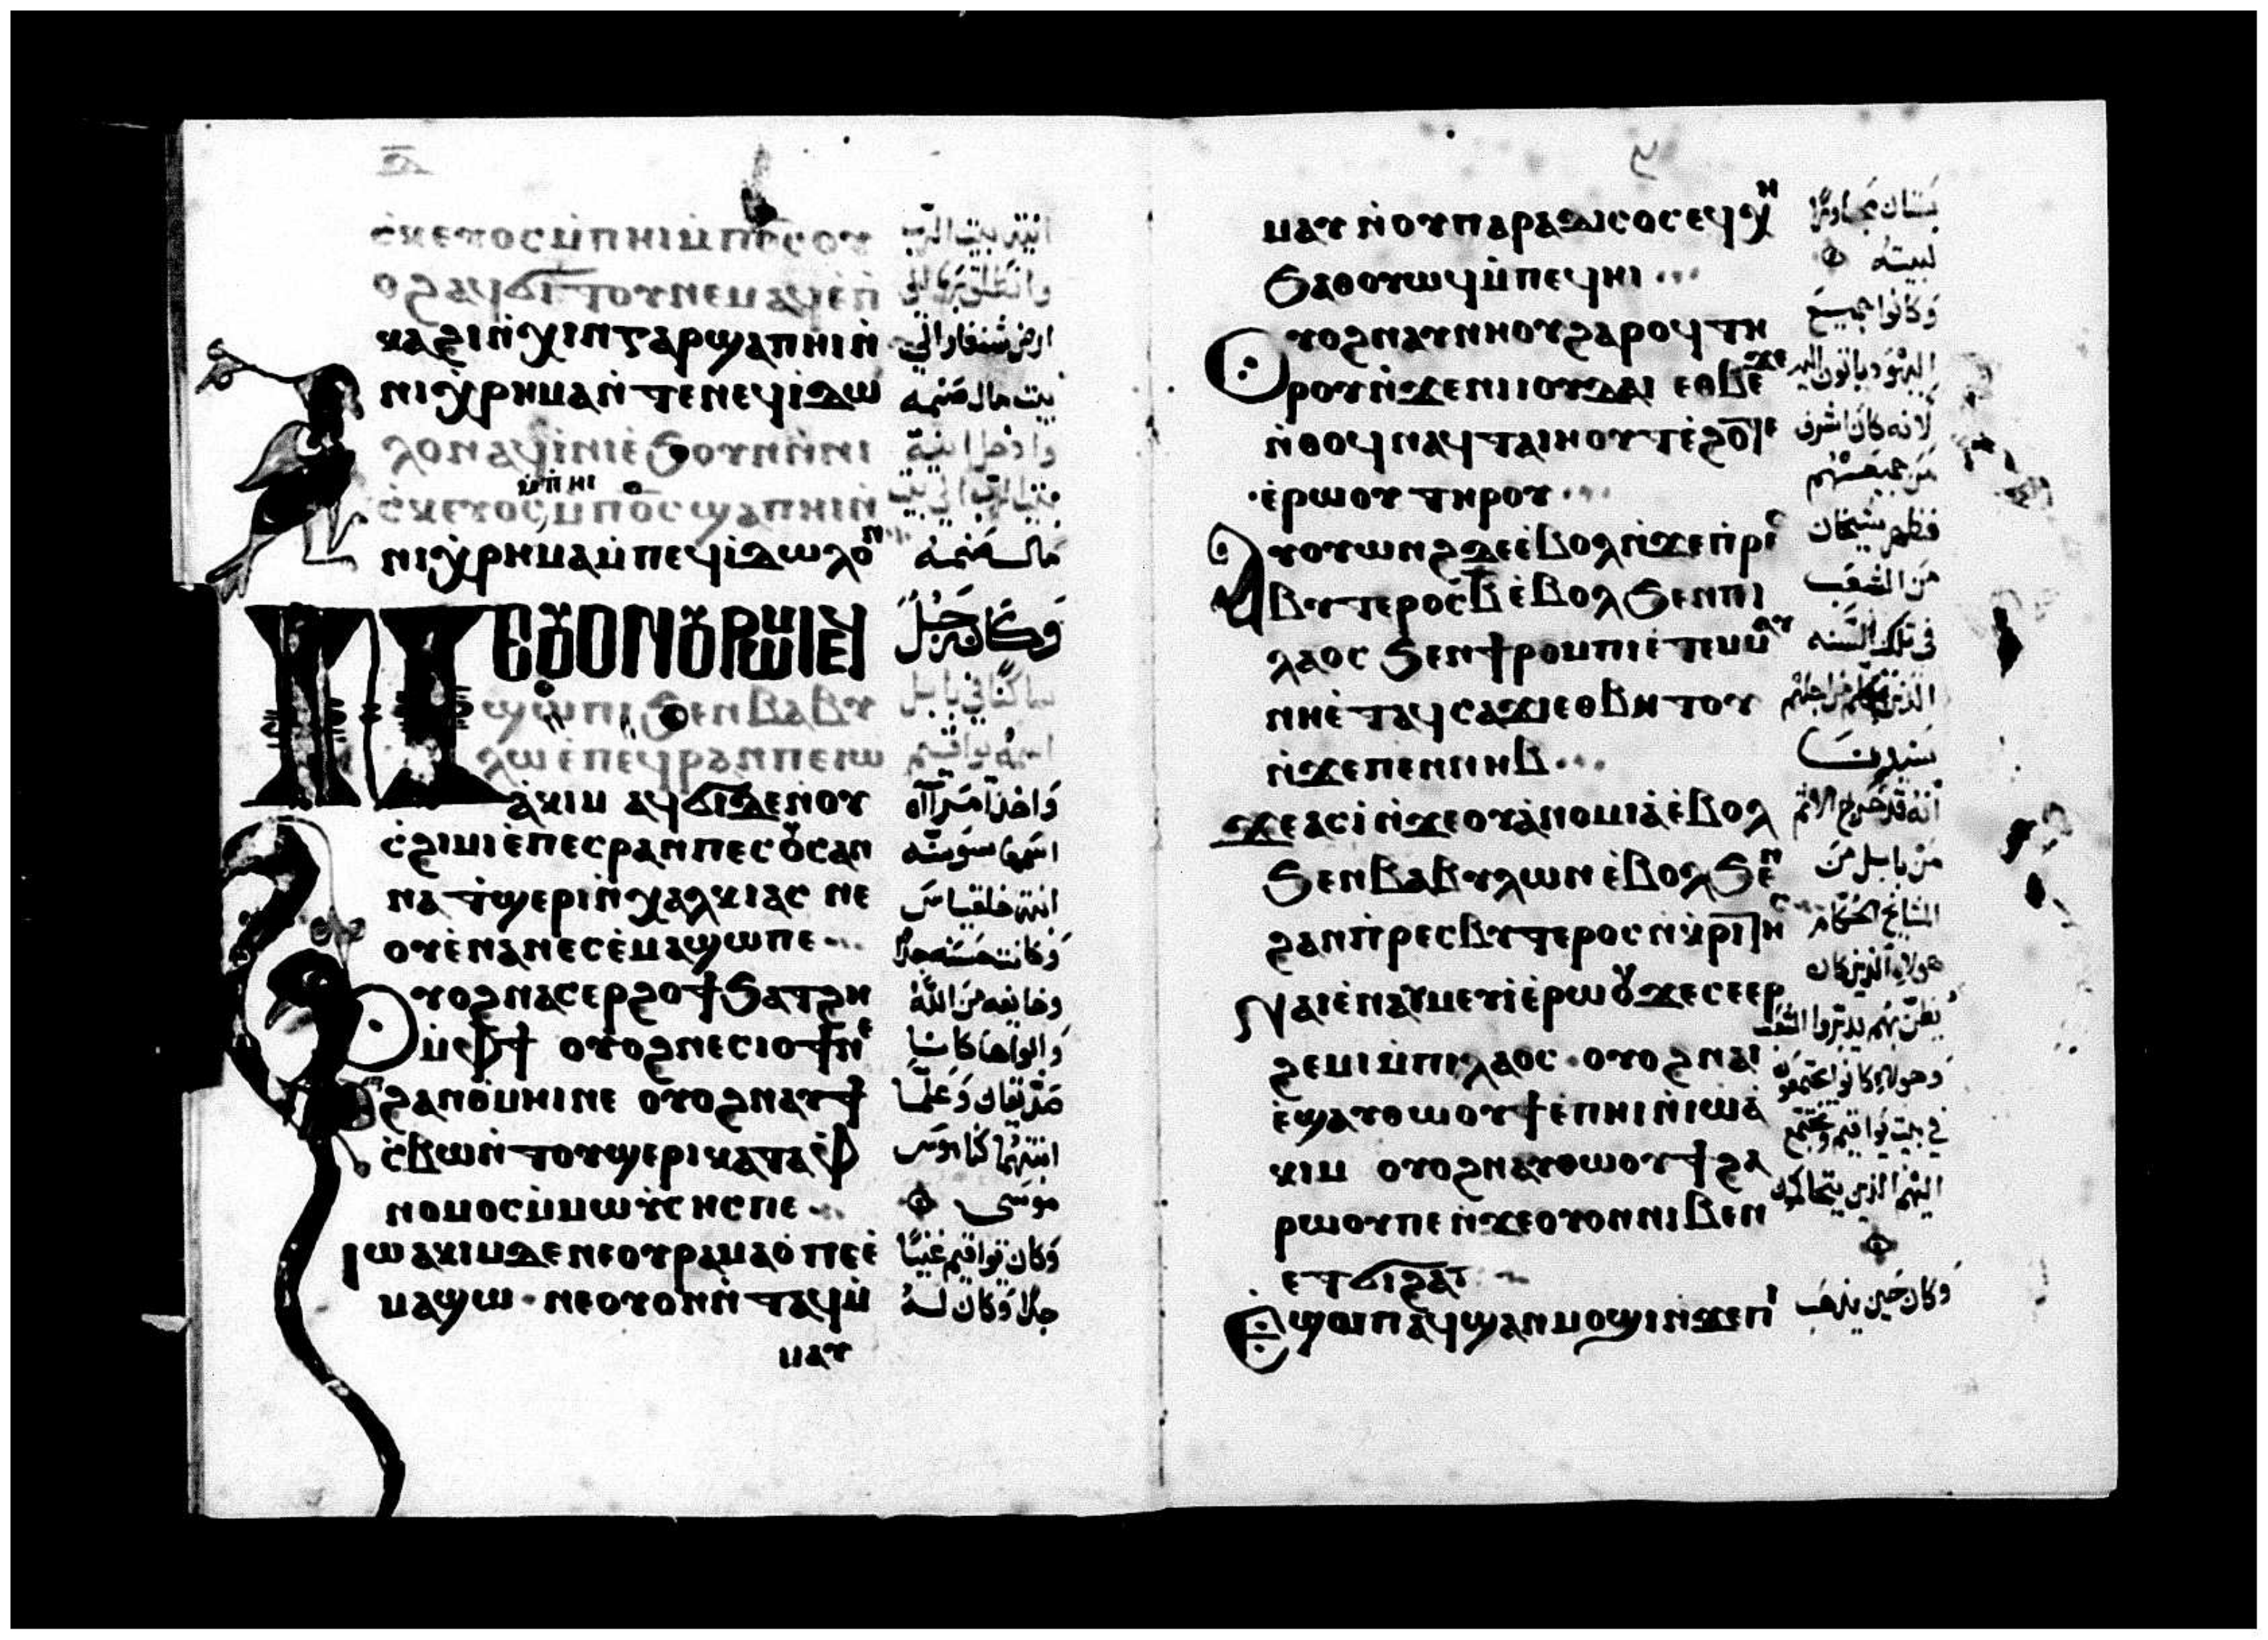 ⲥ̀ⲕⲉⲩⲟⲥ ⲙ̀ⲡⲏⲓ ⲙ̀ⲡⲟ̅ⲥ̅ ⲟⲩ
ⲟϩ ⲁϥϭⲓⲧⲟⲩ ⲛⲉⲙⲁϥ ⲉ̀ⲡ̀
ⲕⲁϩⲓ ⲛ̀ϫⲓⲛⲥⲁⲣ ϣⲁ ⲡⲏⲓ ⲛ̀
ⲛⲓⲭ̀ⲣⲏⲙⲁ ⲛ̀ⲧⲉ ⲛⲉϥⲓ̀ⲇⲱ
ⲗⲟⲛ ⲁϥⲓ̀ⲛⲓ ⲉ̀ϧⲟⲩⲛ ⲛ̀ⲛⲓ
ⲙ̀ⲡⲏⲓ
ⲥ̀ⲕⲉⲩⲟⲥ ⲙ̀ⲡⲟ̅ⲥ̅ ϣⲁ ⲡⲏⲓ ⲛ̀
ⲛⲓⲭ̀ⲣⲏⲙⲁ ⲙ̀ⲡⲉϥⲓ̀ⲇⲱⲗⲟⲛ
ⲛⲉⲟⲩⲟⲛ ⲟⲩⲣⲱⲙⲓ ⲉϥ
ϣⲱⲡⲓ ϧⲉⲛ ⲃⲁⲃⲩ
ⲗⲱ ⲉ̀ⲡⲉϥⲣⲁⲛ ⲡⲉ ⲓⲱ
ⲁ̀ⲕⲓⲙ ⲁϥϭⲓ ⲇⲉ ⲛ̀ⲟⲩ
ⲥ̀ϩⲓⲙⲓ ⲉ̀ⲡⲉⲥⲣⲁⲛ ⲡⲉ ⲥⲟⲩⲥⲁⲛ
ⲛⲁ ⲧ̀ϣⲉⲣⲓ ⲛ̀ⲭⲁⲗⲕⲓⲁⲥ ⲛⲉ
ⲟⲩⲉ̀ⲛⲁⲛⲉⲥ ⲉ̀ⲙⲁϣⲱ ⲡⲉ
ⲟⲩⲟϩ ⲛⲁⲥⲉⲣϩⲟϯ ϧⲁⲧϩⲏ
ⲙ̀ⲫϯ ⲟⲩⲟϩ ⲛⲉⲥⲓⲟϯ ⲛⲉ
ϩⲁⲛⲑ̀ⲙⲏⲓ ⲛⲉ ⲟⲩⲟϩ ⲛⲁⲩϯ
ⲥ̀ⲃⲱ ⲛ̀ⲧⲟⲩϣⲉⲣⲓ ⲕⲁⲧⲁ ⲫ̀
ⲛⲟⲙⲟⲥ ⲙ̀ⲙⲱⲩ̀ⲥⲏⲥ ⲡⲉ
ⲓⲱⲁⲕⲓⲙ ⲇⲉ ⲛⲉ ⲟⲩⲣⲁⲙⲁⲟ̀ ⲡⲉ ⲉ̀
ⲙⲁϣⲱ · ⲛⲉⲟⲩⲟⲛ ⲛ̀ⲧⲁϥ ⲙ̀
ⲙⲁⲩ
انية بيت الرب
وانطلق بها الي
ارض شنغار الي
بيت مال صنمه
وادخل انية
بيت الرب الي بيت
مال صنمه
وكان رجل
ساكنا في بابل
اسمه يواقيم
واخذ امراة
اسمها سوسنه
ابنة خلقياس
وكانت حسنه جدا
وخايفه من الله
والواها كانا
صديقان وعلما
ابنتهما كناموس
موسى
وكان يواقيم غنيا
جدا وكان له
ⲙⲁⲩ ⲛ̀ⲟⲩⲡⲁⲣⲁⲇⲓⲥⲟⲥ ⲉϥⲭⲏ
ϧⲁⲑⲟⲩⲱϥ ⲙ̀ⲡⲉϥⲏⲓ
ⲟⲩⲟϩ ⲛⲁⲩⲛⲏⲟⲩ ϩⲁⲣⲟϥ ⲧⲏ
ⲣⲟⲩ ⲛ̀ϫⲉ ⲛⲓⲓⲟⲩⲇⲁⲓ ⲉⲑⲃⲉϫⲉ
ⲛ̀ⲑⲟϥ ⲛⲁϥⲧⲁⲓⲏⲟⲩⲧ ⲉ̀ϩⲟⲧⲉ
ⲉ̀ⲣⲱⲟⲩ ⲧⲏⲣⲟⲩ
ⲁⲩⲟⲩⲱⲛϩ ⲇⲉ ⲉ̀ⲃⲟⲗ ⲛ̀ϫⲉ ⲡ̀ⲣⲉⲥ
ⲃⲩⲧⲉⲣⲟⲥ ⲃ̅ ⲉ̀ⲃⲟⲗ ϧⲉⲛ ⲡⲓ
ⲗⲁⲟⲥ ϧⲉⲛ ϯⲣⲟⲙⲡⲓ ⲉ̀ⲧⲉⲙⲙⲁⲩ
ⲛⲏⲉ̀ⲧⲁϥⲥⲁϫⲓ ⲉⲑⲃⲏⲧⲟⲩ
ⲛ̀ϫⲉ ⲡⲉⲛⲛⲏⲃ
ϫⲉ ⲁⲥⲓ̀ ⲛ̀ϫⲉ ⲟⲩⲁ̀ⲛⲟⲙⲓⲁ̀ ⲉ̀ⲃⲟⲗ
ϧⲉⲛ ⲃⲁⲃⲩⲗⲱⲛ ⲉ̀ⲃⲟⲗ ϧⲉⲛ
ϩⲁⲛⲡ̀ⲣⲉⲥⲃⲩⲧⲉⲣⲟⲥ ⲛ̀ⲕ̀ⲣⲓⲧⲏⲥ
ⲛⲁⲓ ⲉ̀ⲛⲁⲩⲙⲉⲩⲓ̀ ⲉ̀ⲣⲱⲟⲩ ϫⲉ ⲥⲉⲉⲣ
ϩⲉⲙⲓ ⲙ̀ⲡⲓⲗⲁⲟⲥ · ⲟⲩⲟϩ ⲛⲁⲓ
ⲉ̀ϣⲁⲩⲑⲱⲟⲩϯ ⲉ̀ⲡⲏⲓ ⲛ̀ⲓⲱⲁ̀
ⲕⲓⲙ ⲟⲩⲟϩ ⲛⲁⲩⲑⲱⲟⲩϯ ϩⲁ
ⲣⲱⲟⲩ ⲡⲉ ⲛ̀ϫⲉ ⲟⲩⲟⲛ ⲛⲓⲃⲉⲛ
ⲉⲧϭⲓϩⲁⲡ
ⲉϣⲱⲡ ⲁϥϣⲁⲛⲙⲟϣⲓ ⲛ̀ϫⲉ ⲡⲓ
بستان مجاورًا
لبيته
وكانوا جميع
اليهود ياتون اليه
لانه كان اشرف
من جميعهم
فظهر شيخان
من الشعب
في تلك السنه
الذين تكلم من اجلهم
سيدنا
انه قد خرج الاثم
من بابل من
المشايخ الحكام
هولاء الذين كان
يظن بهم يدبروا الشعب
وهولاء كانوا يجتمعون
في بيت يواقيم ويجتمع
اليهم الذين يتحاكمون
وكان حين يذهب